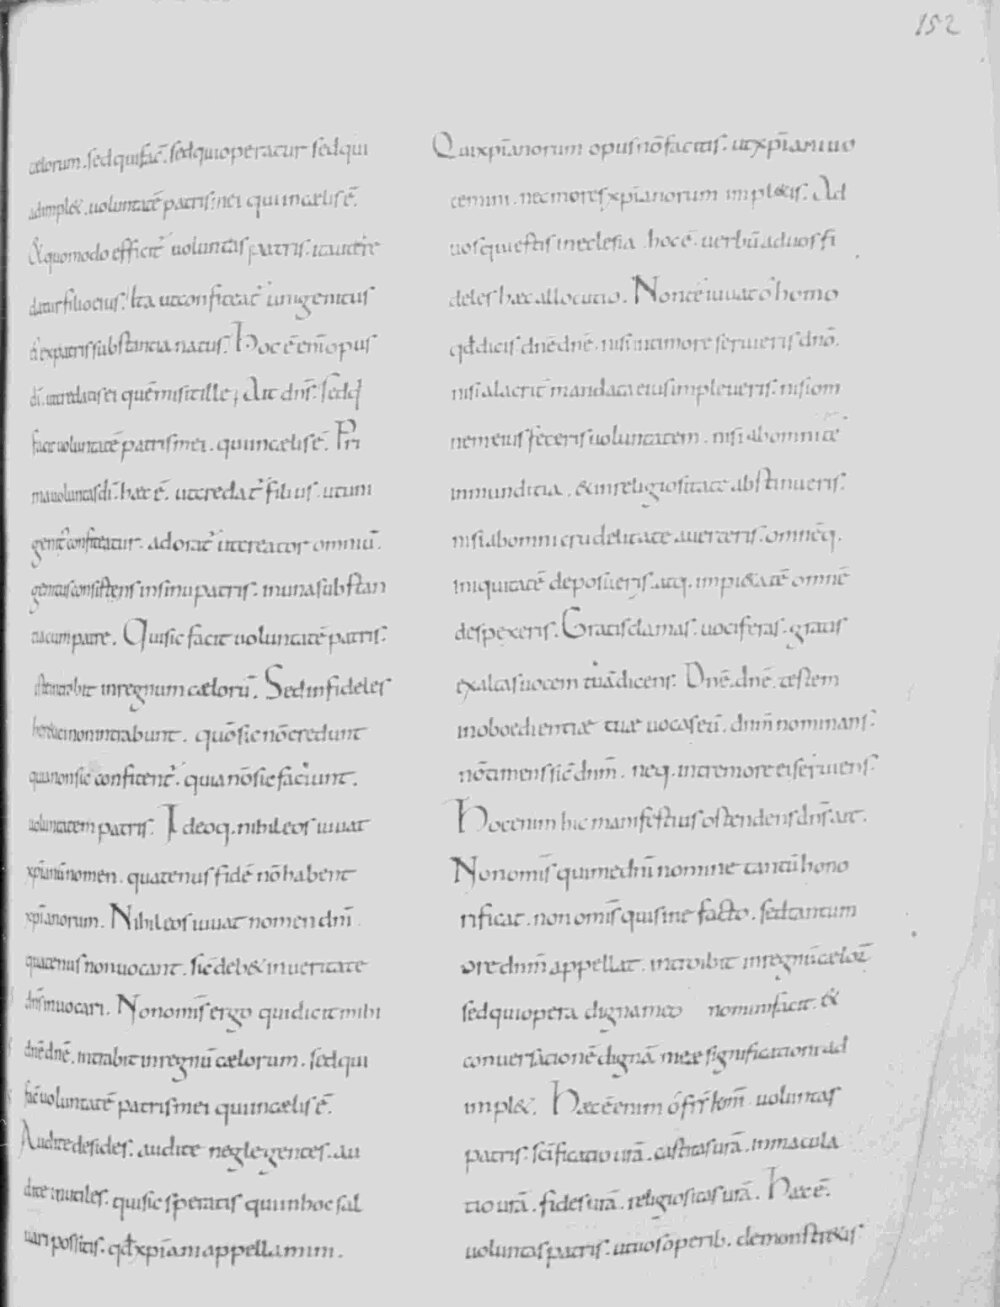 152
cælorum. sed qui fac̄. sed qui operatur sed qui
adimpl&. uoluntatē patris mei qui in cælis ē.
& quomodo efficit᷑ uoluntas patris. ita uere
datur filio eius. Ita ut confiteat᷑ unigenitus
ex patris substancia natus. Hoc ē eni opus
dī. ut credatis ei quē misit ille; Ait dns̄. sed q
facit uoluntatē patris mei. qui in cælis ē. Pri
ma uoluntas dī. hæc ē. ut credat᷑ filius. ut uni
genit᷑ confiteatur. adorat᷑ ut creator omniū.
genitus consistens in sinu patris. in una substan
tia cum patre. Qui sic facit uoluntatē patris.
iste intrabit in regnum cælorū. Sed infideles
non intrabunt. quō sic nō credunt
quia non sic confitent᷑. quia nō sic faciunt.
uoluntatem patris. Ideoq. nihil eos iuuat
xp̄ianū nomen. quatenus fidē nō habent
xp̄ianorum. Nihil eos iuuat nomen dn̄i
quatenus non uocant. sic̄ deb& in ueritate
dn̄s inuocari. Non omīs ergo qui dicit mihi
dnē dnē. intrabit in regnū cælorum. sed qui
fac̄ uoluntatē patris mei qui in cælis ē.
Audite desides. audite neglegentes. au
dite inutiles. qui sic speratis qui in hoc sal
uari possitis. qđ xp̄iani appellamini.
Qui xp̄ianorum opus nō facitis. ut xp̄iani uo
cemini. nec mores xp̄ianorum impl&is. Ad
uos qui estis in eclesia. hoc ē. uerbū ad uos fi
deles hæc allocutio. Non te iuuat o homo
qđ dicis dnē dnē. nisi in timore serueris dnō.
nisi alacrit᷑ mandata eius impleueris. nisi om
nem eius feceris uoluntatem. nisi ab omni te
inmunditia. & inreligiositate abstinueris.
nisi ab omni crudelitate auerteris. omnēq.
iniquitatē deposueris. atq. impi&atē omnē
despexeris. Gratis clamas. uociferas. gratis
exaltas uocem tuā dicens. Dnē. dnē. testem
inoboedientiæ tuæ uocas eū. dnm̄ nominans.
nō timens sic̄ dnm̄. neq. in tremore ei seruiens.
Hoc enim hic manifestius ostendens dn̄s ait.
Non omīs qui me dn̄i nomine tantū hono
rificat. non omīs qui sine facto. sed tantum
ore dnm̄ appellat. introibit in regnū cæloꝝ
sed qui opera digna meo nomini facit. &
conuersationē dignā meæ significationi ad
impl&. Hæc ē enim o frīs kmī uoluntas
patris. scīficatio urā. castitas urā. inmacula
tio urā. fides urā. religiositas urā. Hæc ē.
uoluntas patris. ut uos operib. demonstr&is